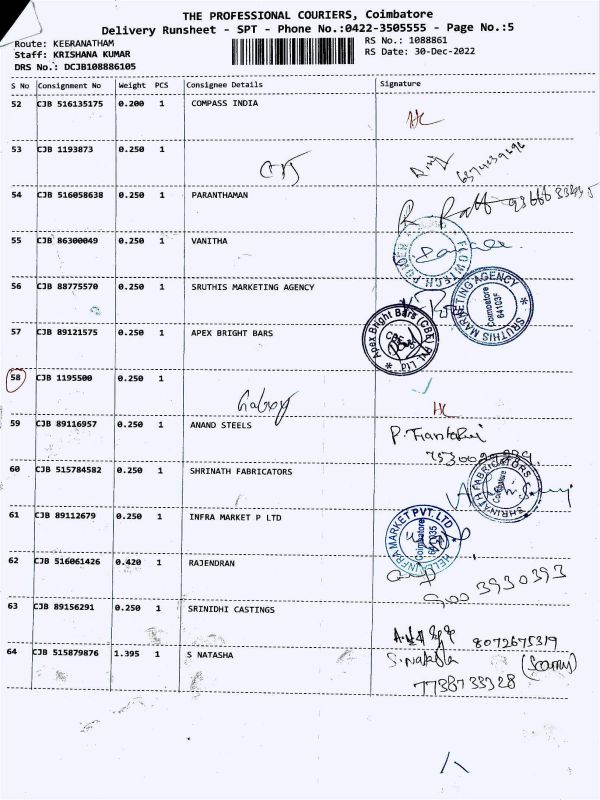 THE PROFESSIONAL COURIERS, Coimbatore
Delivery Runsheet - SPT - Phone No.:0422-3505555 - Page No.:5
Route: KEERANATHAM
RS No.: 1088861
Staff: KRISHANA KUMAR
RS Date: 30-Dec-2022
DRS No.: DCJB108886105
S No Consignment No Weight PCS Consignee Details Signature
52 CJB 516135175 0.200 1 COMPASS INDIA
HC
53 CJB 1193873 0.250 1
54 CJB 516058638 0.250 1 PARANTHAMAN
55 CJB 86300049 0.250 1 VANITHA
FLOWTECH POWDER
56 CJB 88775570 0.250 1 SRUTHIS MARKETING AGENCY
SRUTHIS MARKETING AGENCY
Coimbatore
64103
57 CJB 89121575 0.250 1 APEX BRIGHT BARS
Apex Bright Bars (CBE) Pvt. Ltd
CBE
58 CJB 1195500 0.250 1
HC
59 CJB 89116957 0.250 1 ANAND STEELS
60 CJB 515784582 0.250 1 SHRINATH FABRICATORS
SHRINATH FABRICATORS
Coimbatore
61 CJB 89112679 0.250 1 INFRA MARKET P LTD
HELLA INFRA MARKET PVT. LTD
Coimbatore
641035
62 CJB 516061426 0.420 1 RAJENDRAN
900 3930393
63 CJB 89156291 0.250 1 SRINIDHI CASTINGS
8072675319
64 CJB 515879876 1.395 1 S NATASHA
S. Natasha
7738733328